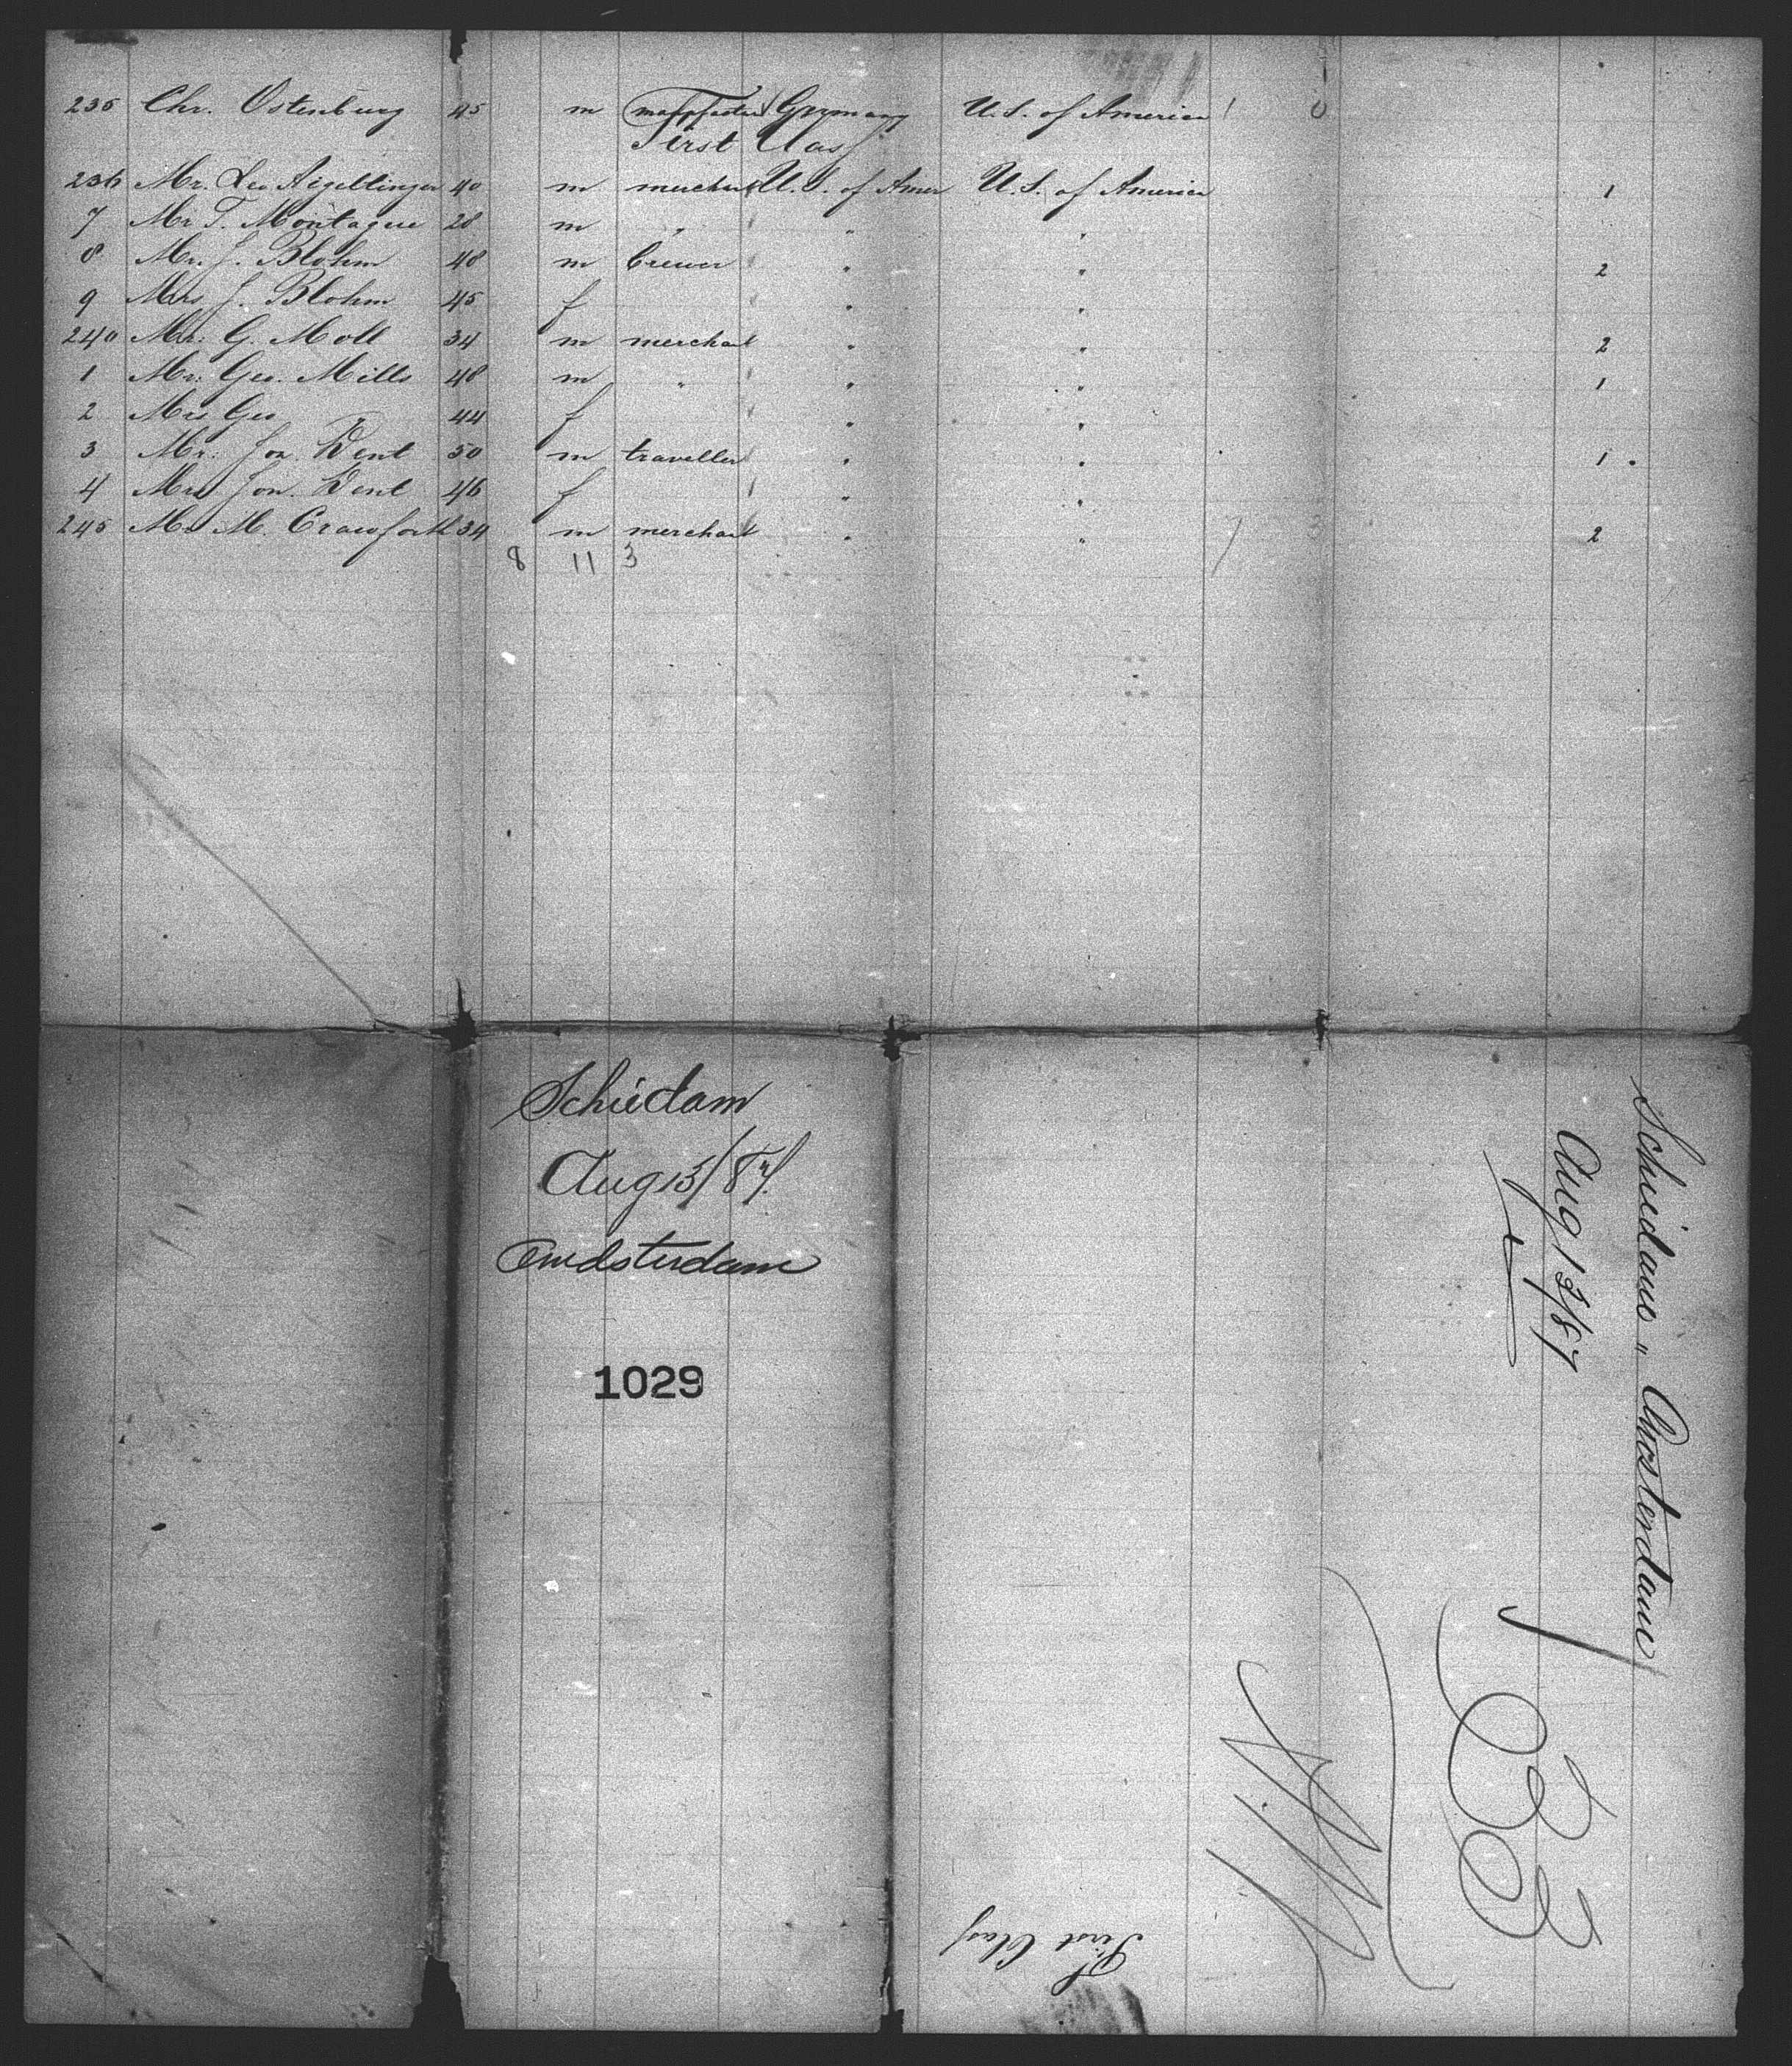 235 Chr. Ostenburg 45 m Germany U.S. of America 1 0
First Class
236 Mr. Leo Aigeltinger 40 m merchant U.S. of Amer U.S. of America 1
7 Mr T. Montague 28 m " " "
8 Mr. J. Blohm 48 m brewer " " 2
9 Mrs J. Blohm 45 f " "
240 Mr. G. Moll 34 m merchant " " 2
1 Mr. Geo. Mills 48 m " " " 1
2 Mrs Geo 44 f " "
3 Mr. Jon. Dent 50 m traveller " " 1
4 Mrs Jon. Dent 46 f " "
245 Mr M. Crawforth 34 m merchant " " 7 3 2
8 11 3
Schiedam
Aug 13/87.
Amsterdam
1029
Schiedam " Amsterdam
Aug 13/87
33
First Class